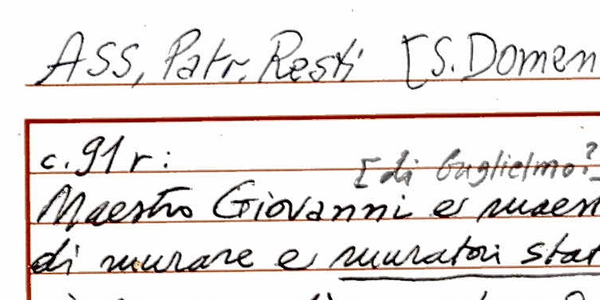 ASS, Patr. Resti [S. Domen
c. 91 r:
[di Guglielmo?]
Maestro Giovanni e maes
di murare e muratori stat